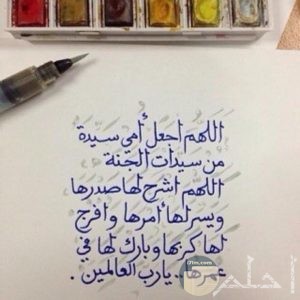 اللهم اجعل أمي سيدة
من سيدات الجنة
اللهم اشرح لها صدرها
ويسر لها أمرها وافرج
لها كربها وبارك لها في
عمرها.. يارب العالمين .
احلم